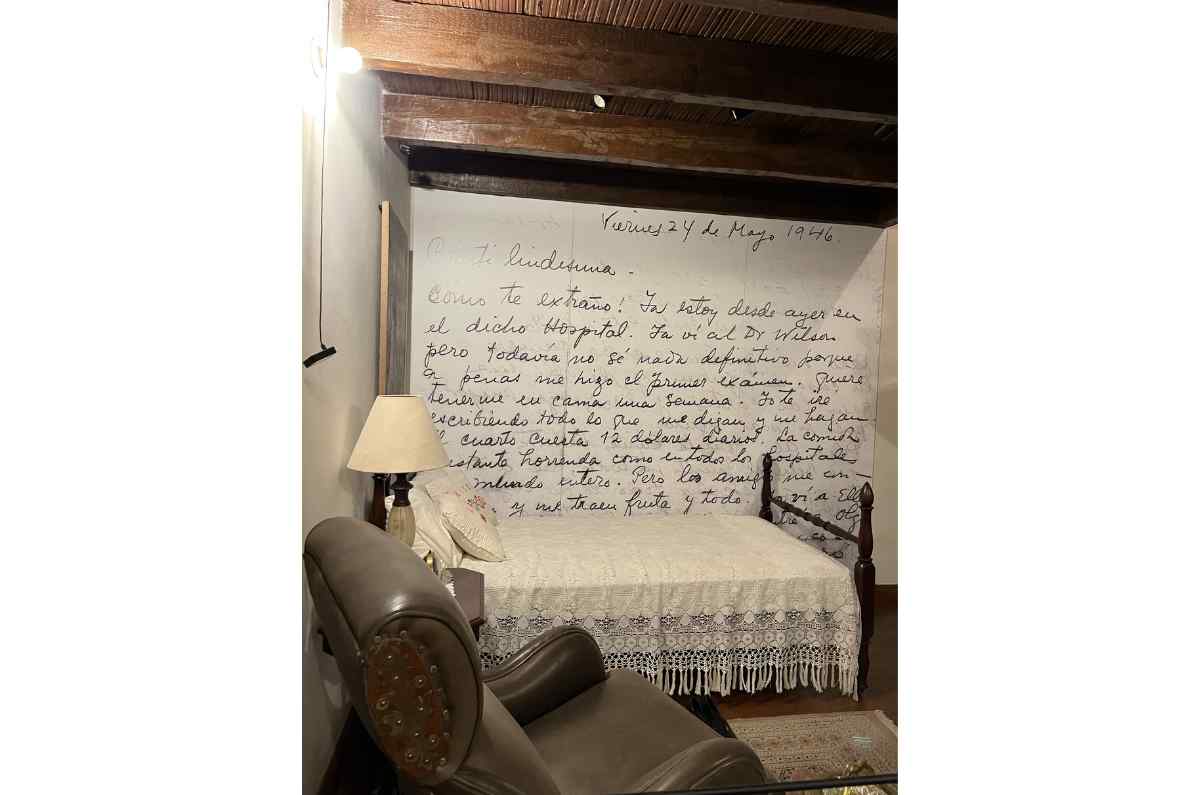 Viernes 24 de Mayo 1946.
lindísima.
Como te extraño! Ya estoy desde ayer en
el dicho Hospital. Ya ví al Dr Wilson
pero todavía no sé nada definitivo porque
a penas me hizo el primer exámen. Quiere
tenerme en cama una semana. Yo te iré
escribiendo todo lo que me digan y me hagan.
cuarto cuesta 12 dólares diarios. La comida
horrenda como en todos los hospitales
mundo entero. Pero los amigos me con-
y me traen fruta y todo. ví a